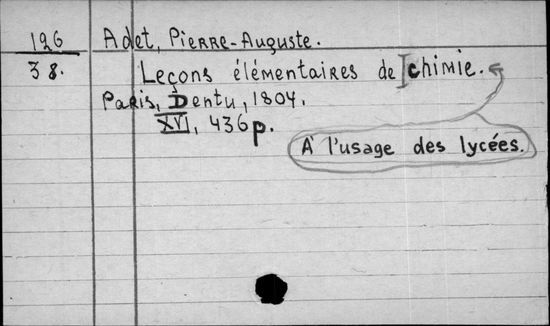 126
38.
Adet, Pierre-Auguste.
Leçons élémentaires de chimie.
Paris, Dentu, 1804.
XVI, 436 p.
A l'usage des lycées.